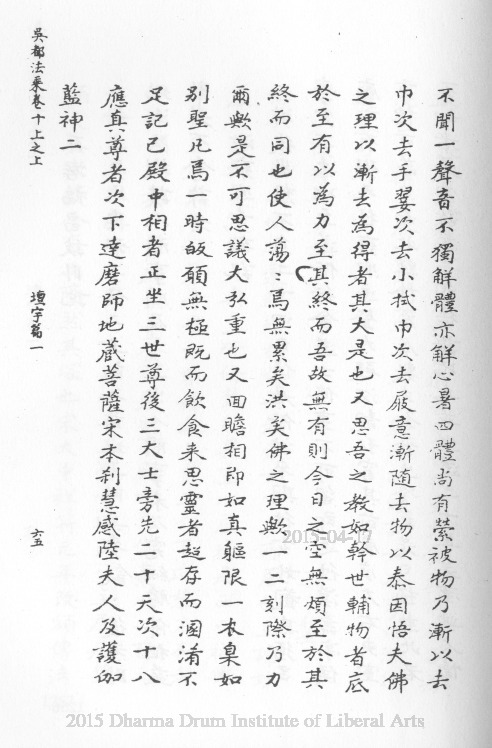 不聞一聲音不獨解體亦解心暑四體尚有縈被物乃漸以去
巾次去手翣次去小拭巾次去履意漸隨去物以泰因悟夫佛
之理以漸去為得者其大是也又思吾之教如幹世輔物者底
於至有以為力至其終而吾故無有則今日之空無煩至於其
終而同也使人蕩〻焉無累矣洪矣佛之理歟一二刻際乃力
爾歟是不可思議大弘重也又面瞻相即如真軀限一衣臬如
別聖凡焉時皈願無極既而飲食来思靈者超存而溷淆不
足記已殿中相者正坐三世尊後三大士旁先二十天次十八
應真尊者次下達磨師地蔵菩薩宋本刹慧感陸夫人及護伽
藍神二
吳都法乘卷十上之上
壇宇篇一
六五
2015-04-17
2015 Dharma Drum Institute of Liberal Arts